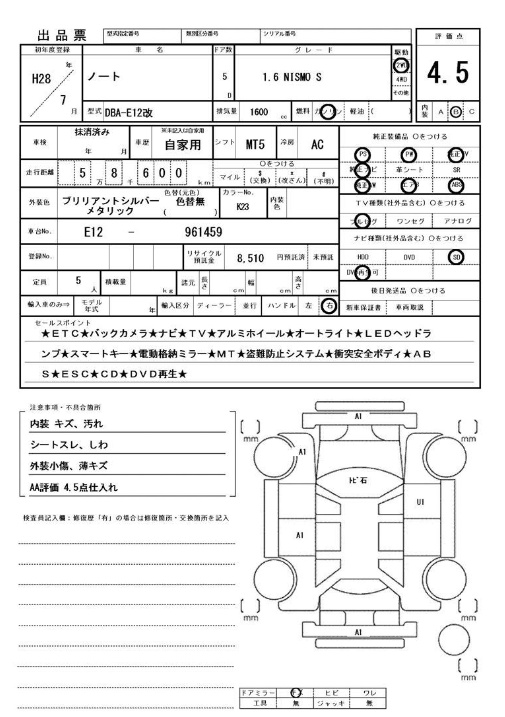 出品票
型式指定番号 類別区分番号 シリアル番号
評価点
4.5
初年度登録 車名 ドア数 グレード 駆動
H28 年 7 月
ノート
5 D
1.6 NISMO S
2WD
4WD
その他
型式 DBA-E12改 排気量 1600 cc 燃料 ガソリン 軽油 ( ) 内装 A B C
車検 抹消済み 年 月 車歴 英字記入は自家用 自家用 シフト MT5 冷房 AC
純正装備品 ○をつける
PS PW 純正TV
純正ナビ 革シート SR
純正AW エアB ABS
走行距離 5万8千600km ○をつける
マイル $(交換) *(改ざん) #(不明)
外装色 ブリリアントシルバーメタリック 色替(元色) 色替無 ( ) カラーNo. K23 内装色
TV種類(社外品含む) ○をつける
フルセグ ワンセグ アナログ
車台No. E12 - 961459
ナビ種類(社外品含む) ○をつける
HDD DVD SD
DVD再生可
登録No. リサイクル預託金 8,510 円預託済 未預託
定員 5 人 積載量 kg 諸元 長さ cm 幅 cm 高さ cm
後日発送品 ○をつける
輸入車のみ⇒ モデル年式 年 輸入区分 ディーラー 並行 ハンドル 左 右
新車保証書 車両取説
セールスポイント
★ETC★バックカメラ★ナビ★TV★アルミホイール★オートライト★LEDヘッドラ
ンプ★スマートキー★電動格納ミラー★MT★盗難防止システム★衝突安全ボディ★AB
S★ESC★CD★DVD再生★
注意事項・不具合箇所
内装 キズ、汚れ
シートスレ、しわ
外装小傷、薄キズ
AA評価 4.5点仕入れ
検査員記入欄:修復歴「有」の場合は修復箇所・交換箇所を記入
A1
[ ] mm
[ ] mm
A1
トビ石
U1
A1
[ ] mm
[ ] mm
A1
[ ] mm
ドアミラー キズ ヒビ ワレ
工具 無 ジャッキ 無